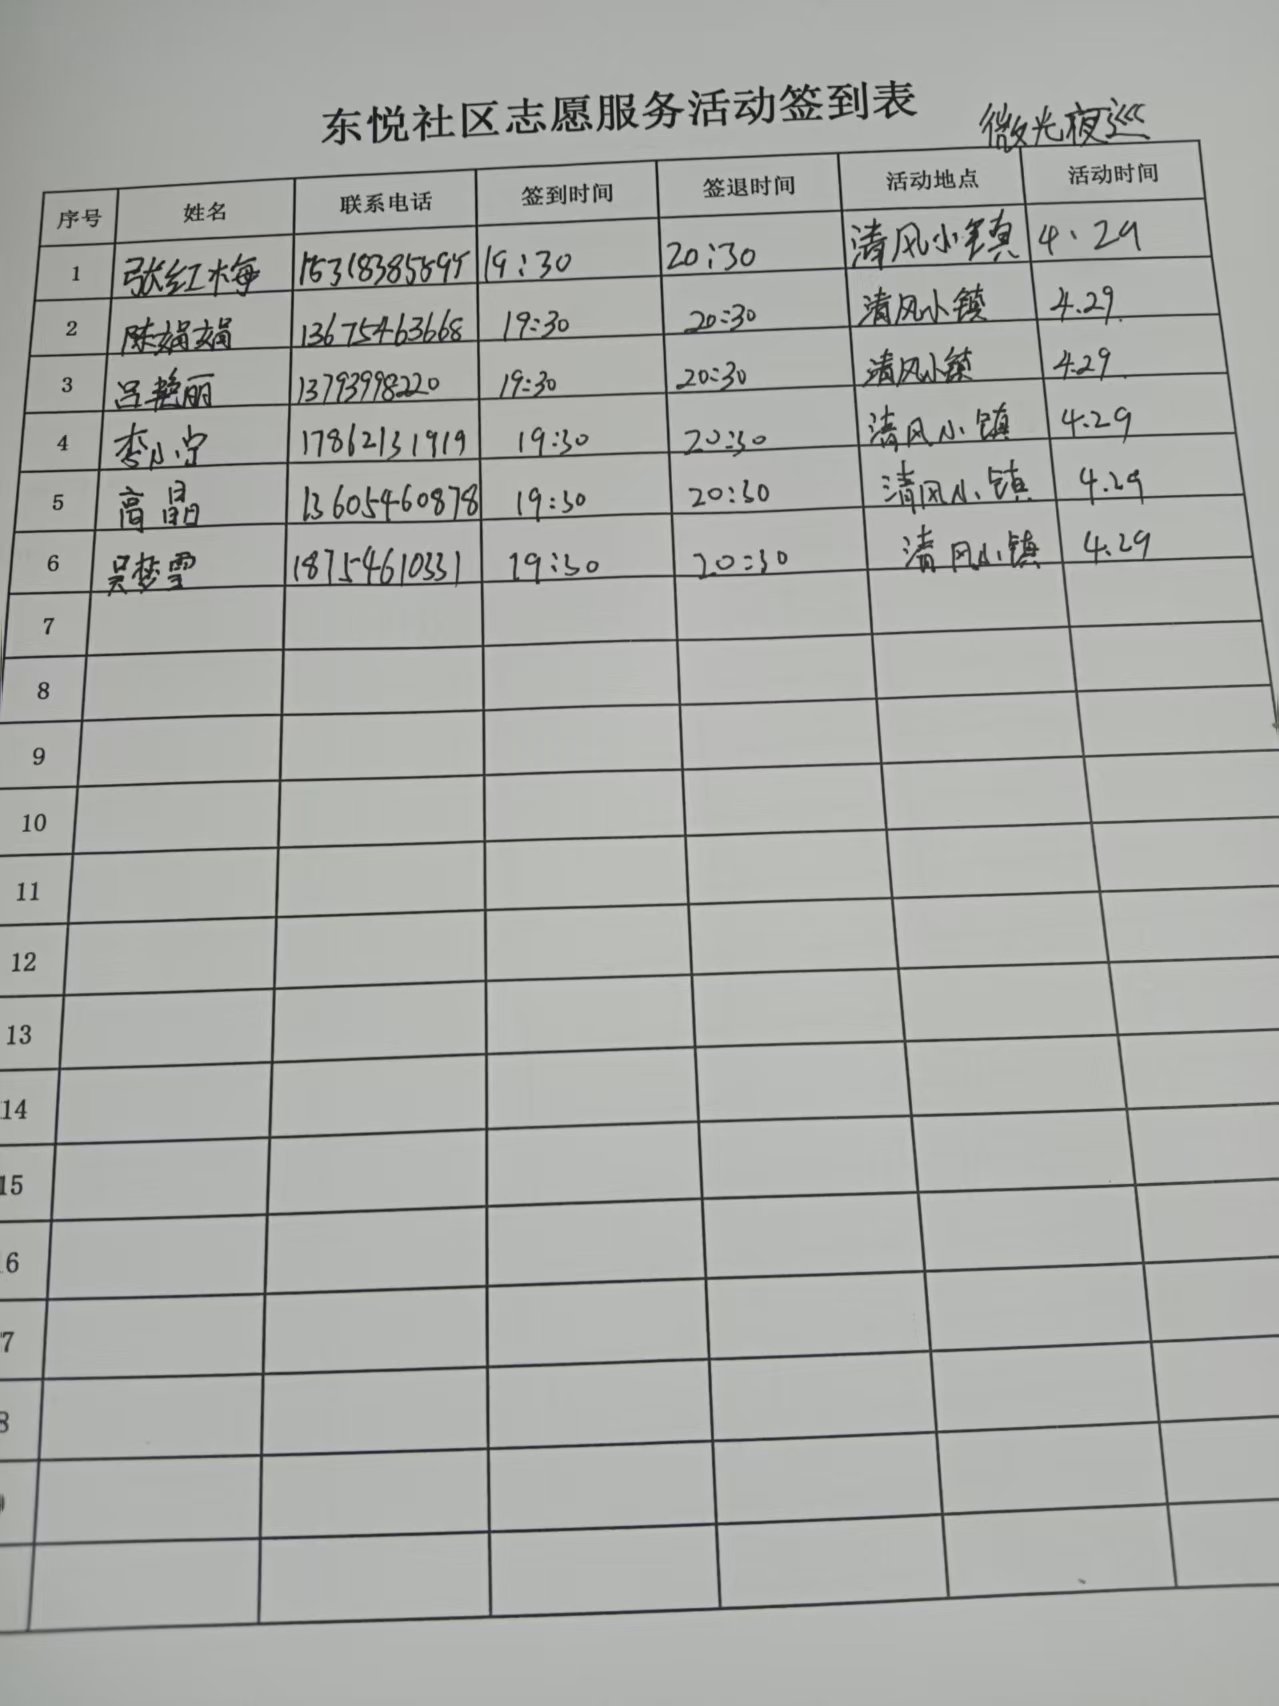 东悦社区志愿服务活动签到表
微光夜巡
序号 姓名 联系电话 签到时间 签退时间 活动地点 活动时间
1 张红梅 19:30 20:30 清风小镇 4.29
2 陈娟娟 13675463668 19:30 20:30 清风小镇 4.29
3 吕艳丽 13793998220 19:30 20:30 清风小镇 4.29
4 李小宁 17862131919 19:30 20:30 清风小镇 4.29
5 高晶 13605460878 19:30 20:30 清风小镇 4.29
6 吴梦雪 18754610331 19:30 20:30 清风小镇 4.29
7
8
9
10
11
12
13
14
15
16
7
8